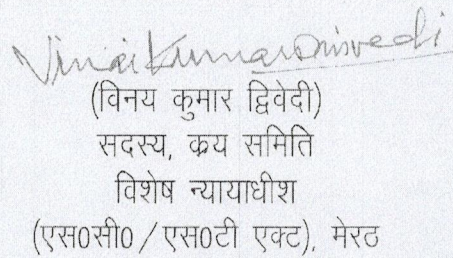 Vinai Kumar Dwivedi
(विनय कुमार द्विवेदी)
सदस्य, क्रय समिति
विशेष न्यायाधीश
(एस0सी0 / एस0टी एक्ट), मेरठ